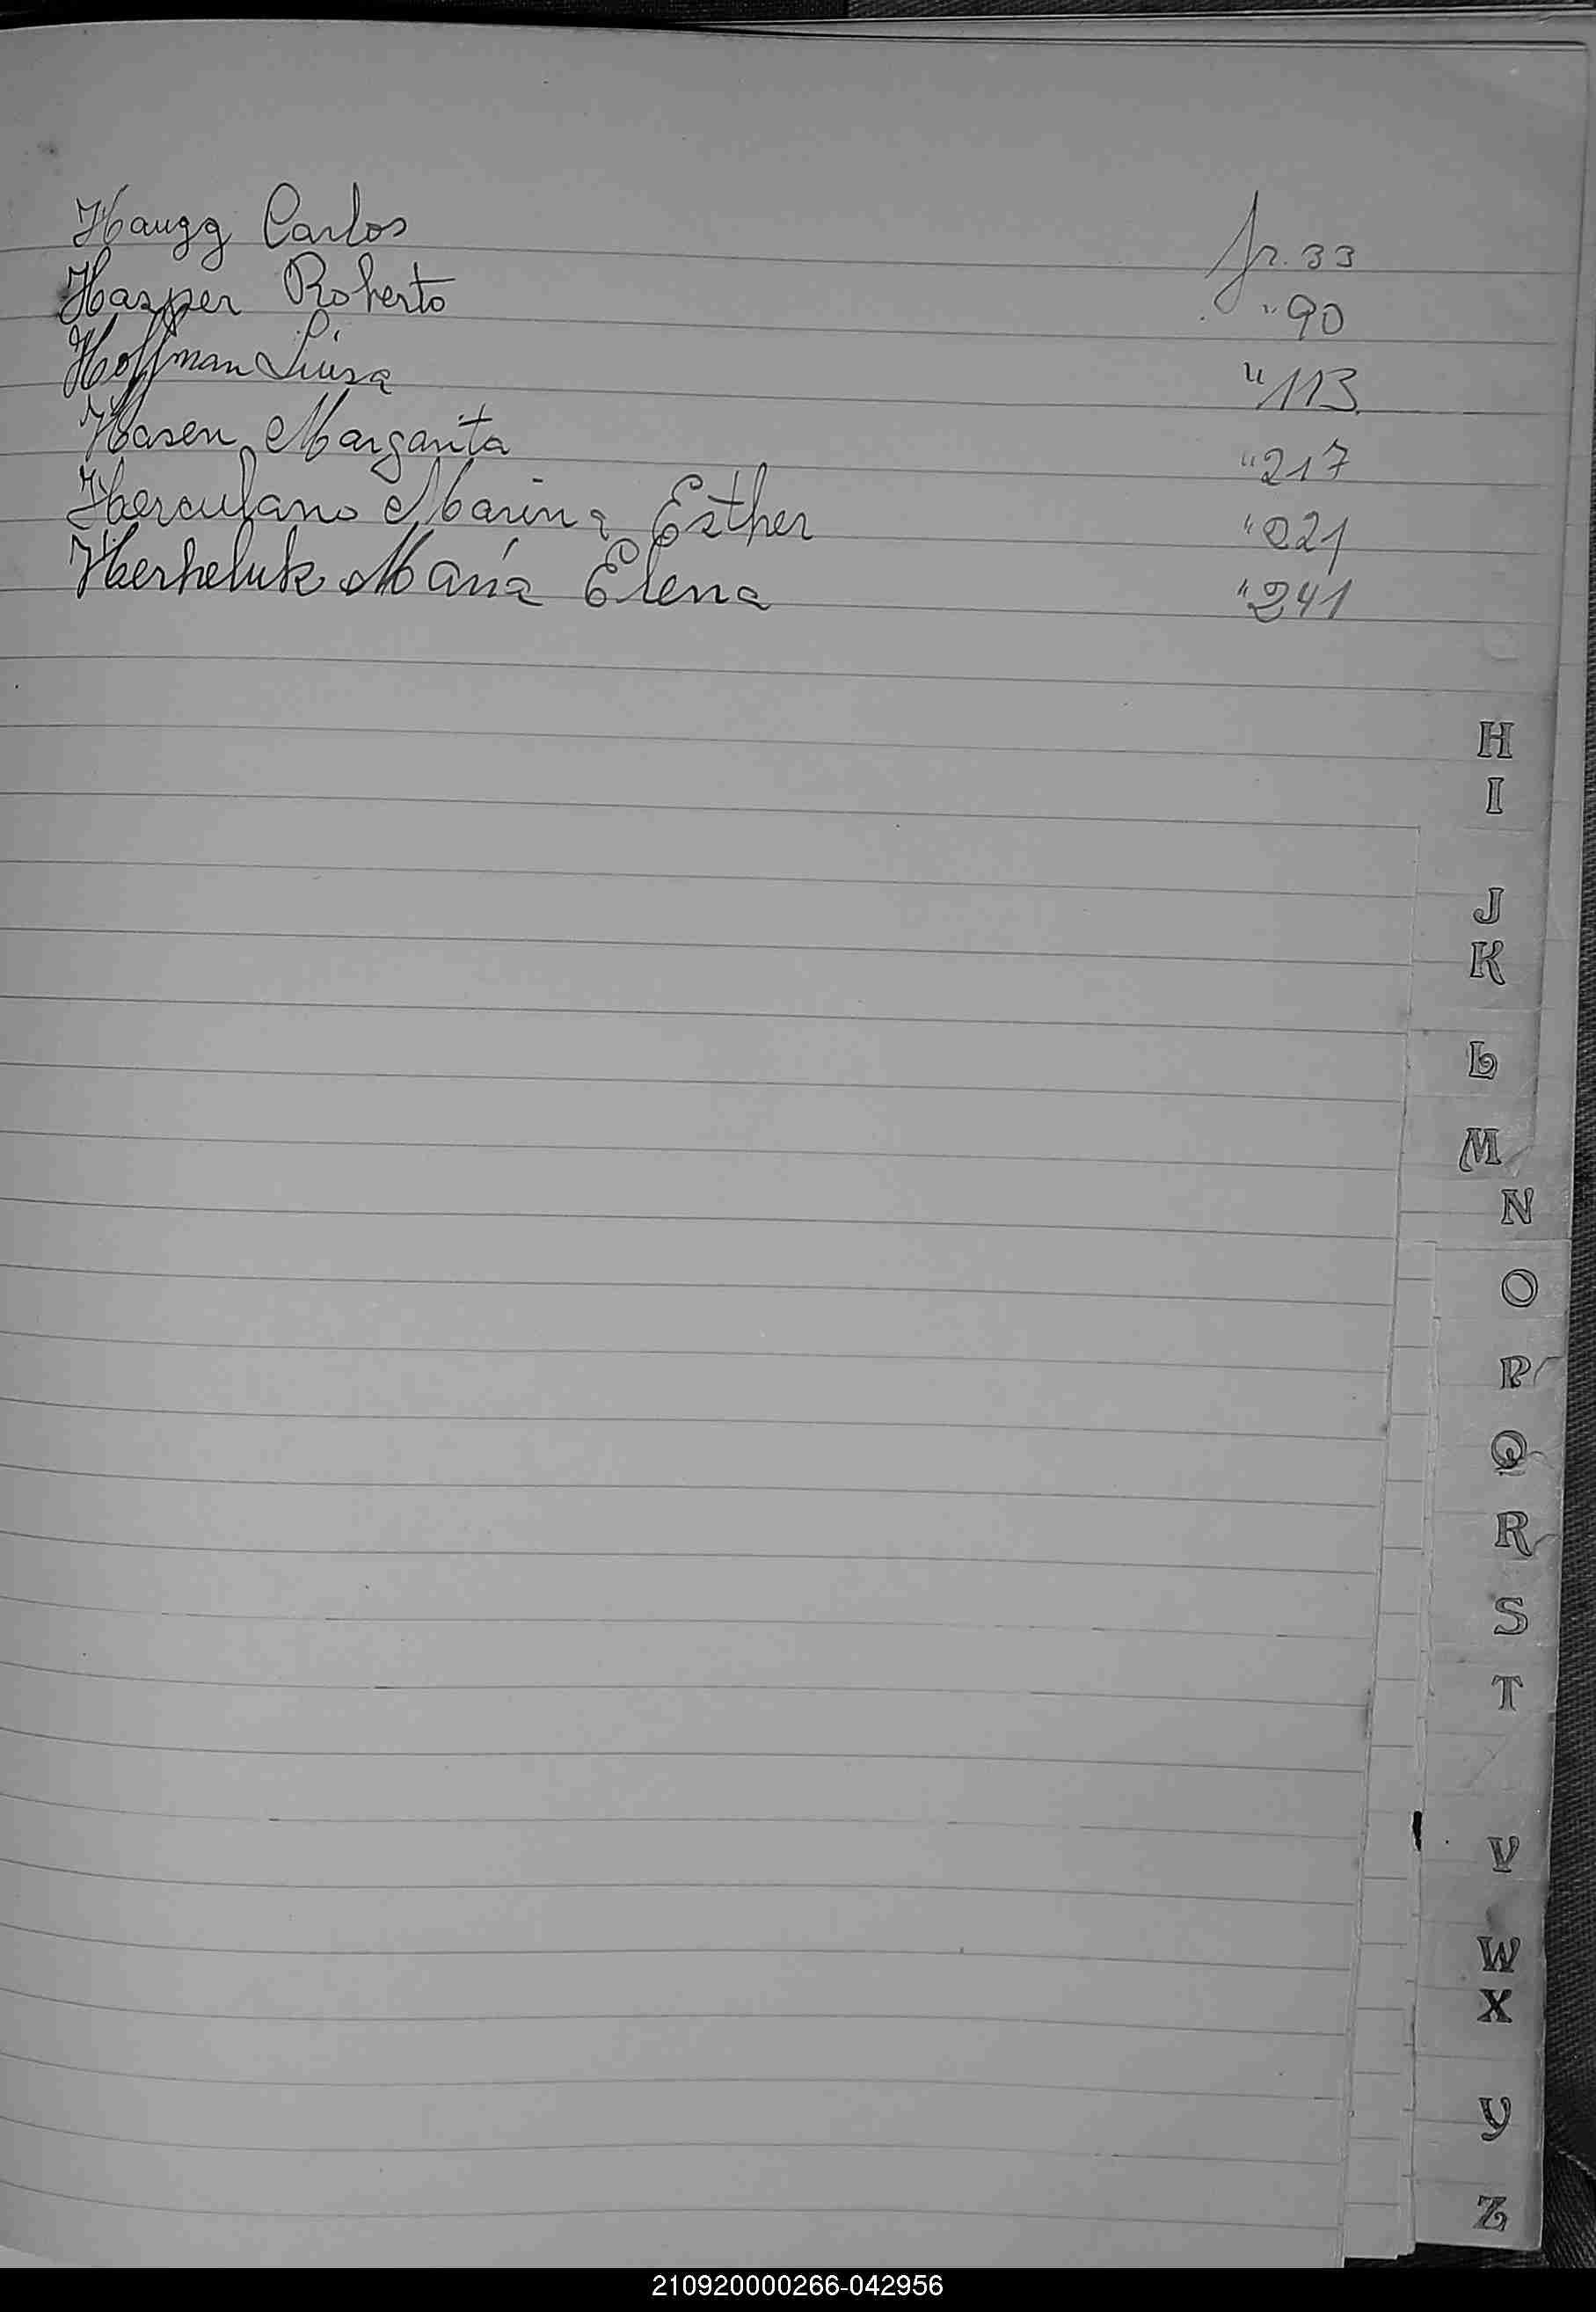 Haugg Carlos fr. 33
Hasper Roberto " 90
Hoffman Luisa " 113
Hasen Margarita " 217
Herculano Marina Esther " 221
Herheluk María Elena " 241
H
I
J
K
L
M
N
O
P
Q
R
S
T
V
W
X
Y
Z
210920000266-042956